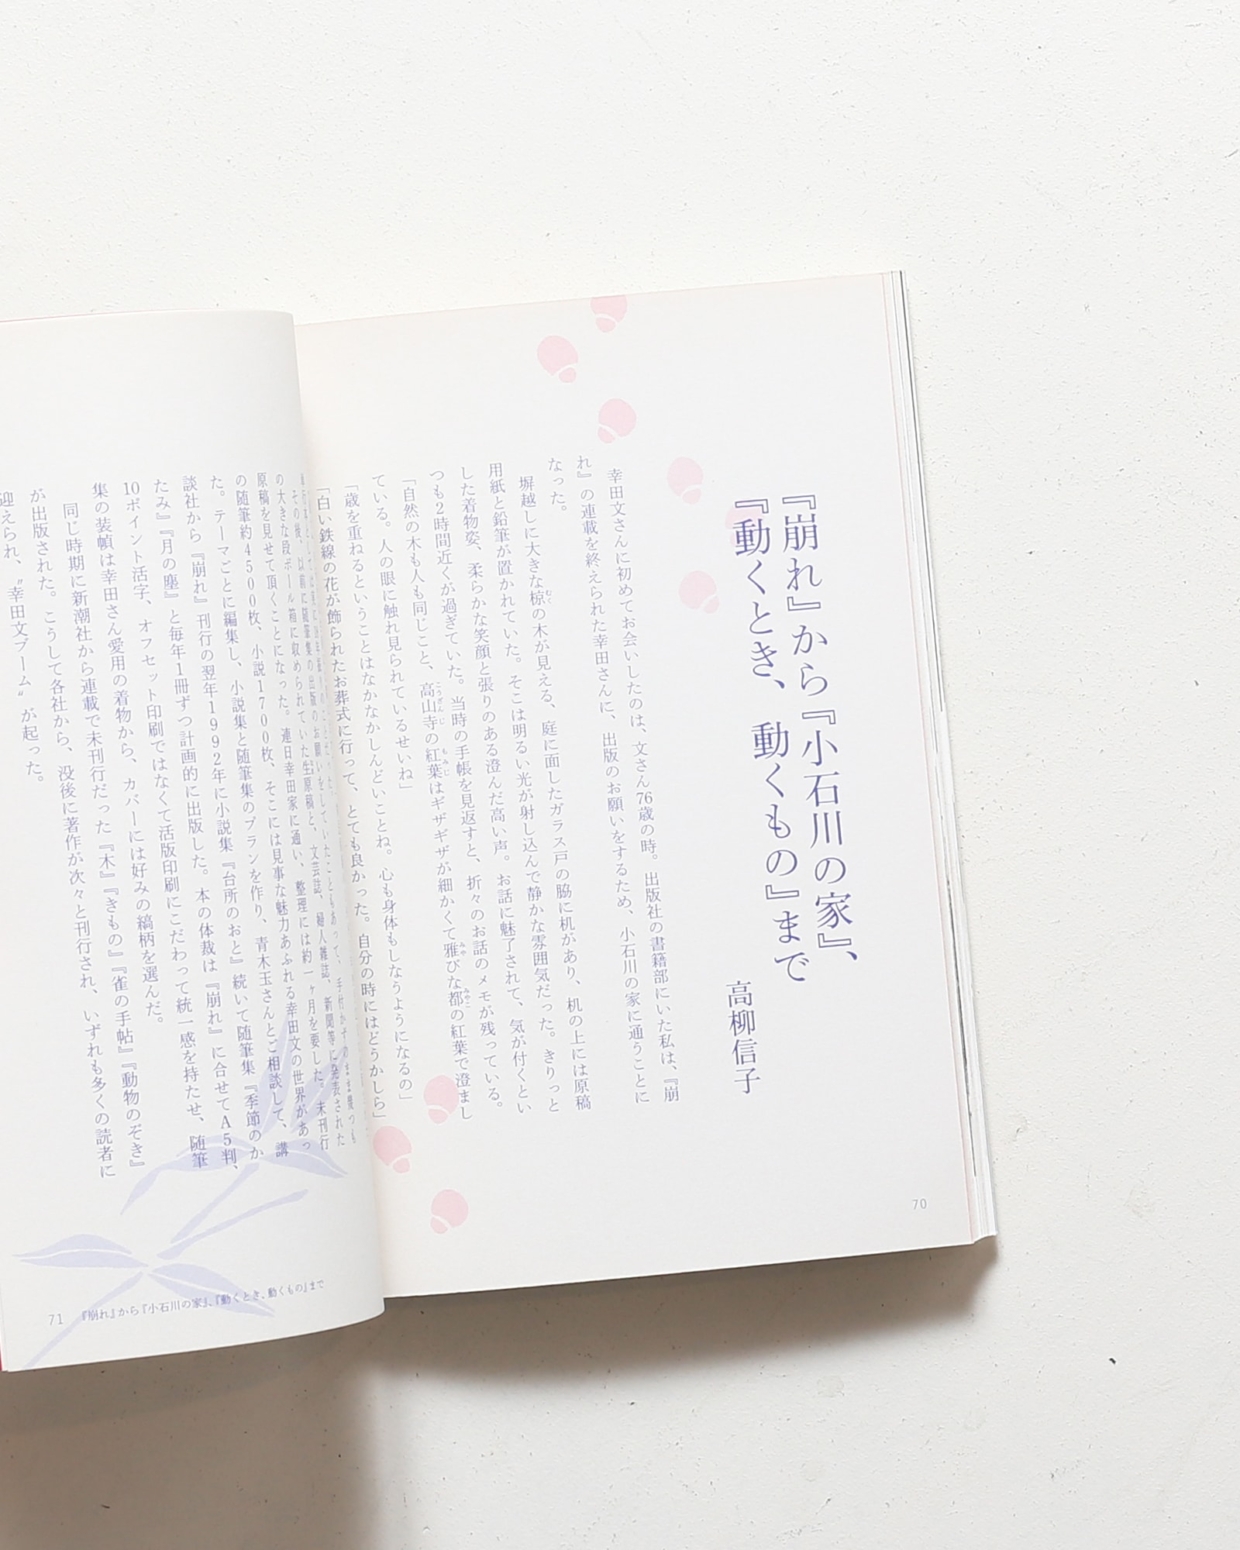 『崩れ』から『小石川の家』、
『動くとき、動くもの』まで
高柳信子
幸田文さんに初めてお会いしたのは、文さん76歳の時。出版社の書籍部にいた私は、『崩
れ』の連載を終えられた幸田さんに、出版のお願いをするため、小石川の家に通うことに
なった。
塀越しに大きな椋の木が見える、庭に面したガラス戸の脇に机があり、机の上には原稿
用紙と鉛筆が置かれていた。そこは明るい光が射し込んで静かな雰囲気だった。きりっと
した着物姿、柔らかな笑顔と張りのある澄んだ高い声。お話に魅了されて、気が付くとい
つも2時間近くが過ぎていた。当時の手帳を見返すと、折々のお話のメモが残っている。
「自然の木も人も同じこと、高山寺の紅葉はギザギザが細かくて雅びな都の紅葉で澄まし
ている。人の眼に触れ見られているせいね」
「歳を重ねるということはなかなかしんどいことね。心も身体もしなうようになるの」
「白い鉄線の花が飾られたお葬式に行って、とても良かった。自分の時にはどうかしら」
70
その後、以前に随筆集の出版のお願いをしていたこともあって、手付かずのまま幾つも
の大きな段ボール箱に収められていた生原稿と、文芸誌、婦人雑誌、新聞等に発表された
原稿を見せて頂くことになった。連日幸田家に通い、整理には約一ヶ月を要した。未刊行
の随筆約4500枚、小説1700枚、そこには見事な魅力あふれる幸田文の世界があっ
た。テーマごとに編集し、小説集と随筆集のプランを作り、青木玉さんとご相談して、講
談社から『崩れ』刊行の翌年1992年に小説集『台所のおと』続いて随筆集『季節のか
たみ』『月の塵』と毎年1冊ずつ計画的に出版した。本の体裁は『崩れ』に合せてA5判、
10ポイント活字、オフセット印刷ではなくて活版印刷にこだわって統一感を持たせ、随筆
集の装幀は幸田さん愛用の着物から、カバーには好みの縞柄を選んだ。
同じ時期に新潮社から連載で未刊行だった『木』『きもの』『雀の手帖』『動物のぞき』
が出版された。こうして各社から、没後に著作が次々と刊行され、いずれも多くの読者に
迎えられ、〝幸田文ブーム〟が起った。
71 『崩れ』から『小石川の家』、『動くとき、動くもの』まで